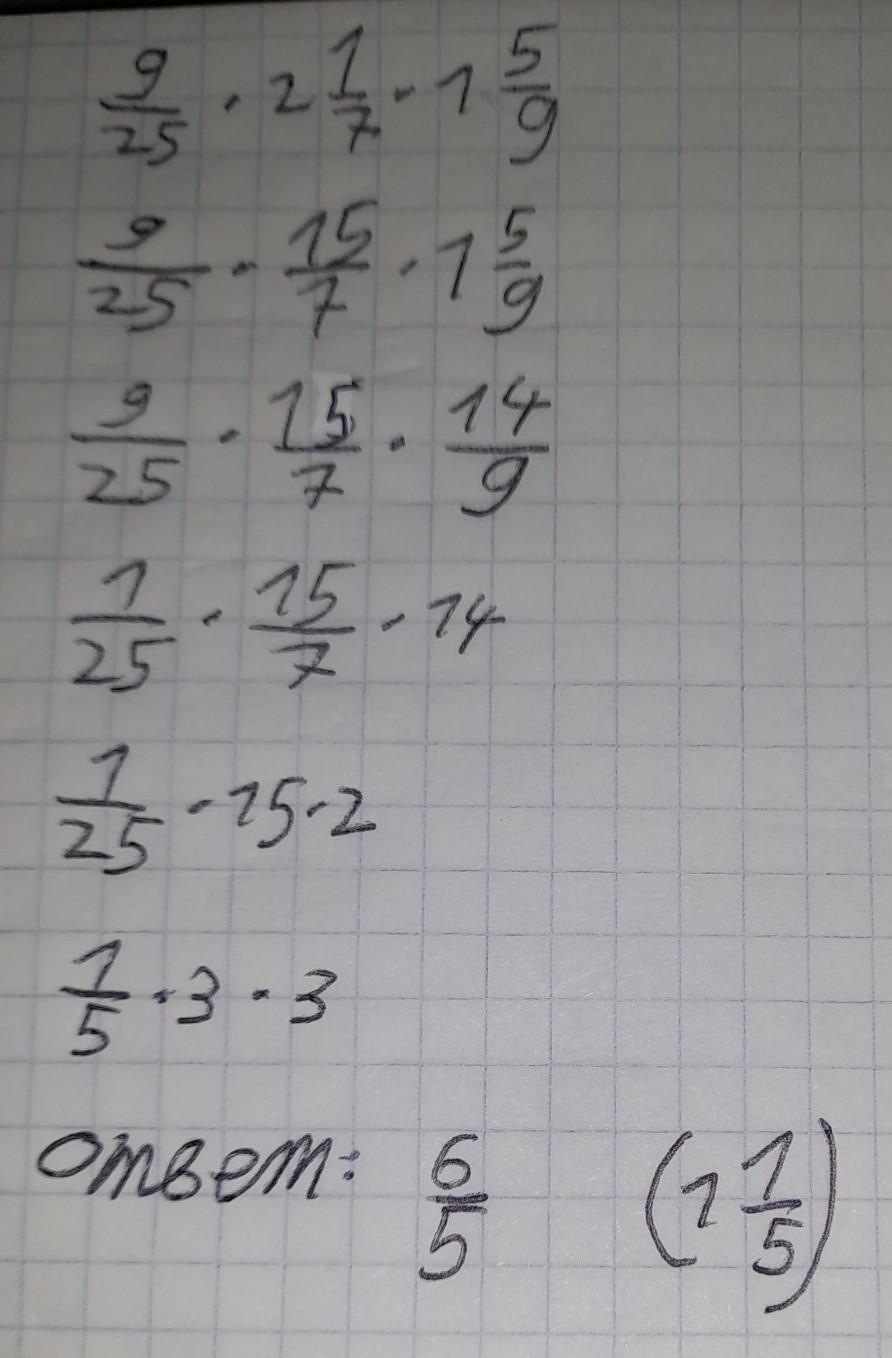 9/25 · 2 1/7 · 1 5/9
9/25 · 15/7 · 1 5/9
9/25 · 15/7 · 14/9
1/25 · 15/7 · 14
1/25 · 15 · 2
1/5 · 3 · 3
ответ: 6/5 (1 1/5)